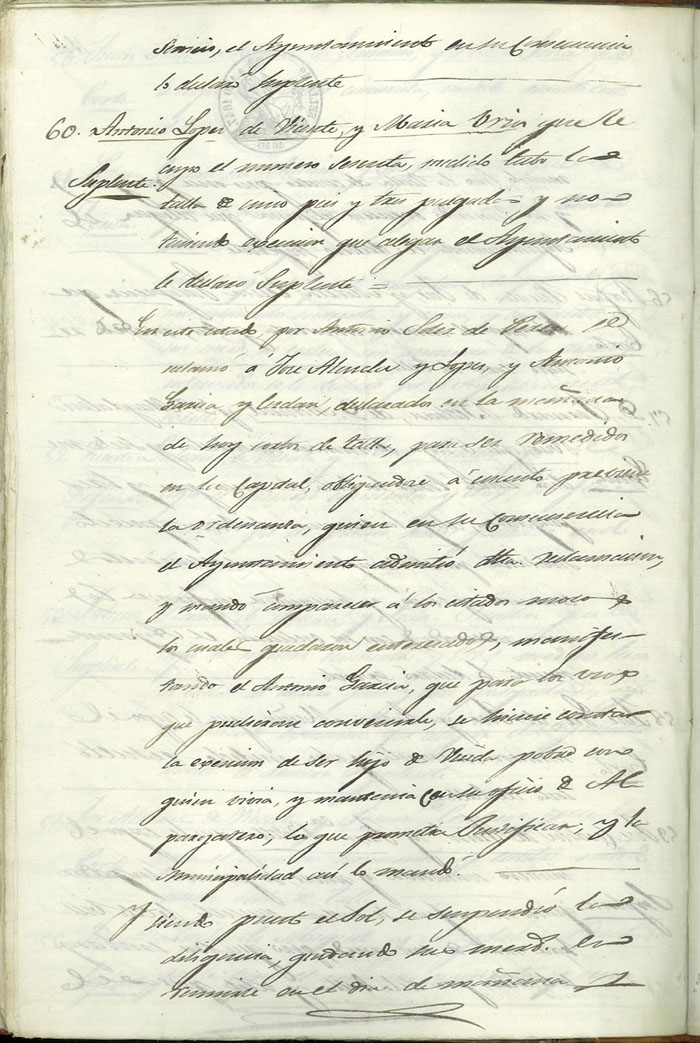 servicio, el Ayuntamiento en su Consecuencia
lo declaró Suplente
60. Antonio Lopez de Vicente, y Maria que le
cupo el numero Sesenta, medido tubo la
Suplente. talla de cinco pies y tres pulgadas y no
teniendo esencion que alegar el Ayuntamiento
le declaró Suplente =
En este estado por Antonio Saez de se
reclamó á Jose y Lopez, y Antonio
Garcia y declarados en la mañana
de hoy cortos de talla, para ser remedidos
en la Capital, obligandose á cuanto previene
la ordenanza, quien en su Consecuencia
el Ayuntamiento admitió dha. reclamacion,
y mandó comparecer á los citados mozos
los cuales quedaron enterados, manifes-
tando el Antonio Garcia, que para los usos
que pudieran convenirle, se hiciese constar
la esencion de ser hijo de Viuda pobre con
quien vivia, y mantenia con su oficio de Al
pargatero; lo que prometia Justificar; y la
Municipalidad asi lo mandó.
Y siendo puesto el Sol, se suspendió la
diligencia, quedando sus mercd.
en el dia de mañana